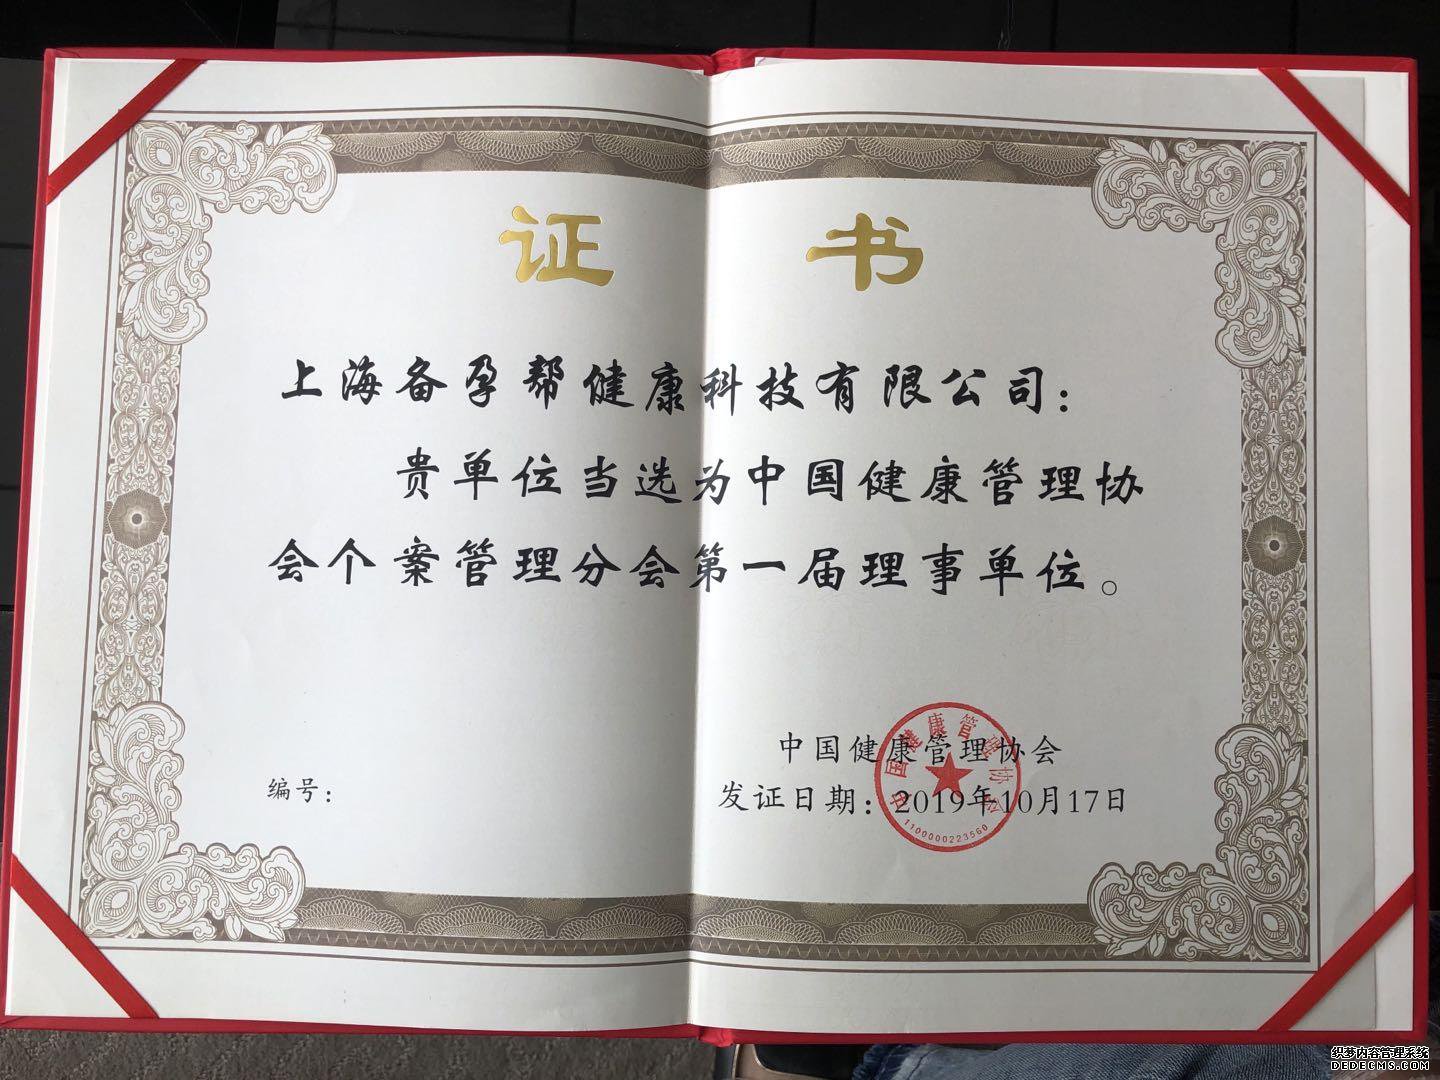 证 书
上海备孕帮健康科技有限公司：
贵单位当选为中国健康管理协
会个案管理分会第一届理事单位。
中国健康管理协会
编号：
发证日期：2019年10月17日
中国健康管理协会
1100000223560
织梦内容管理系统
DEDECMS.COM